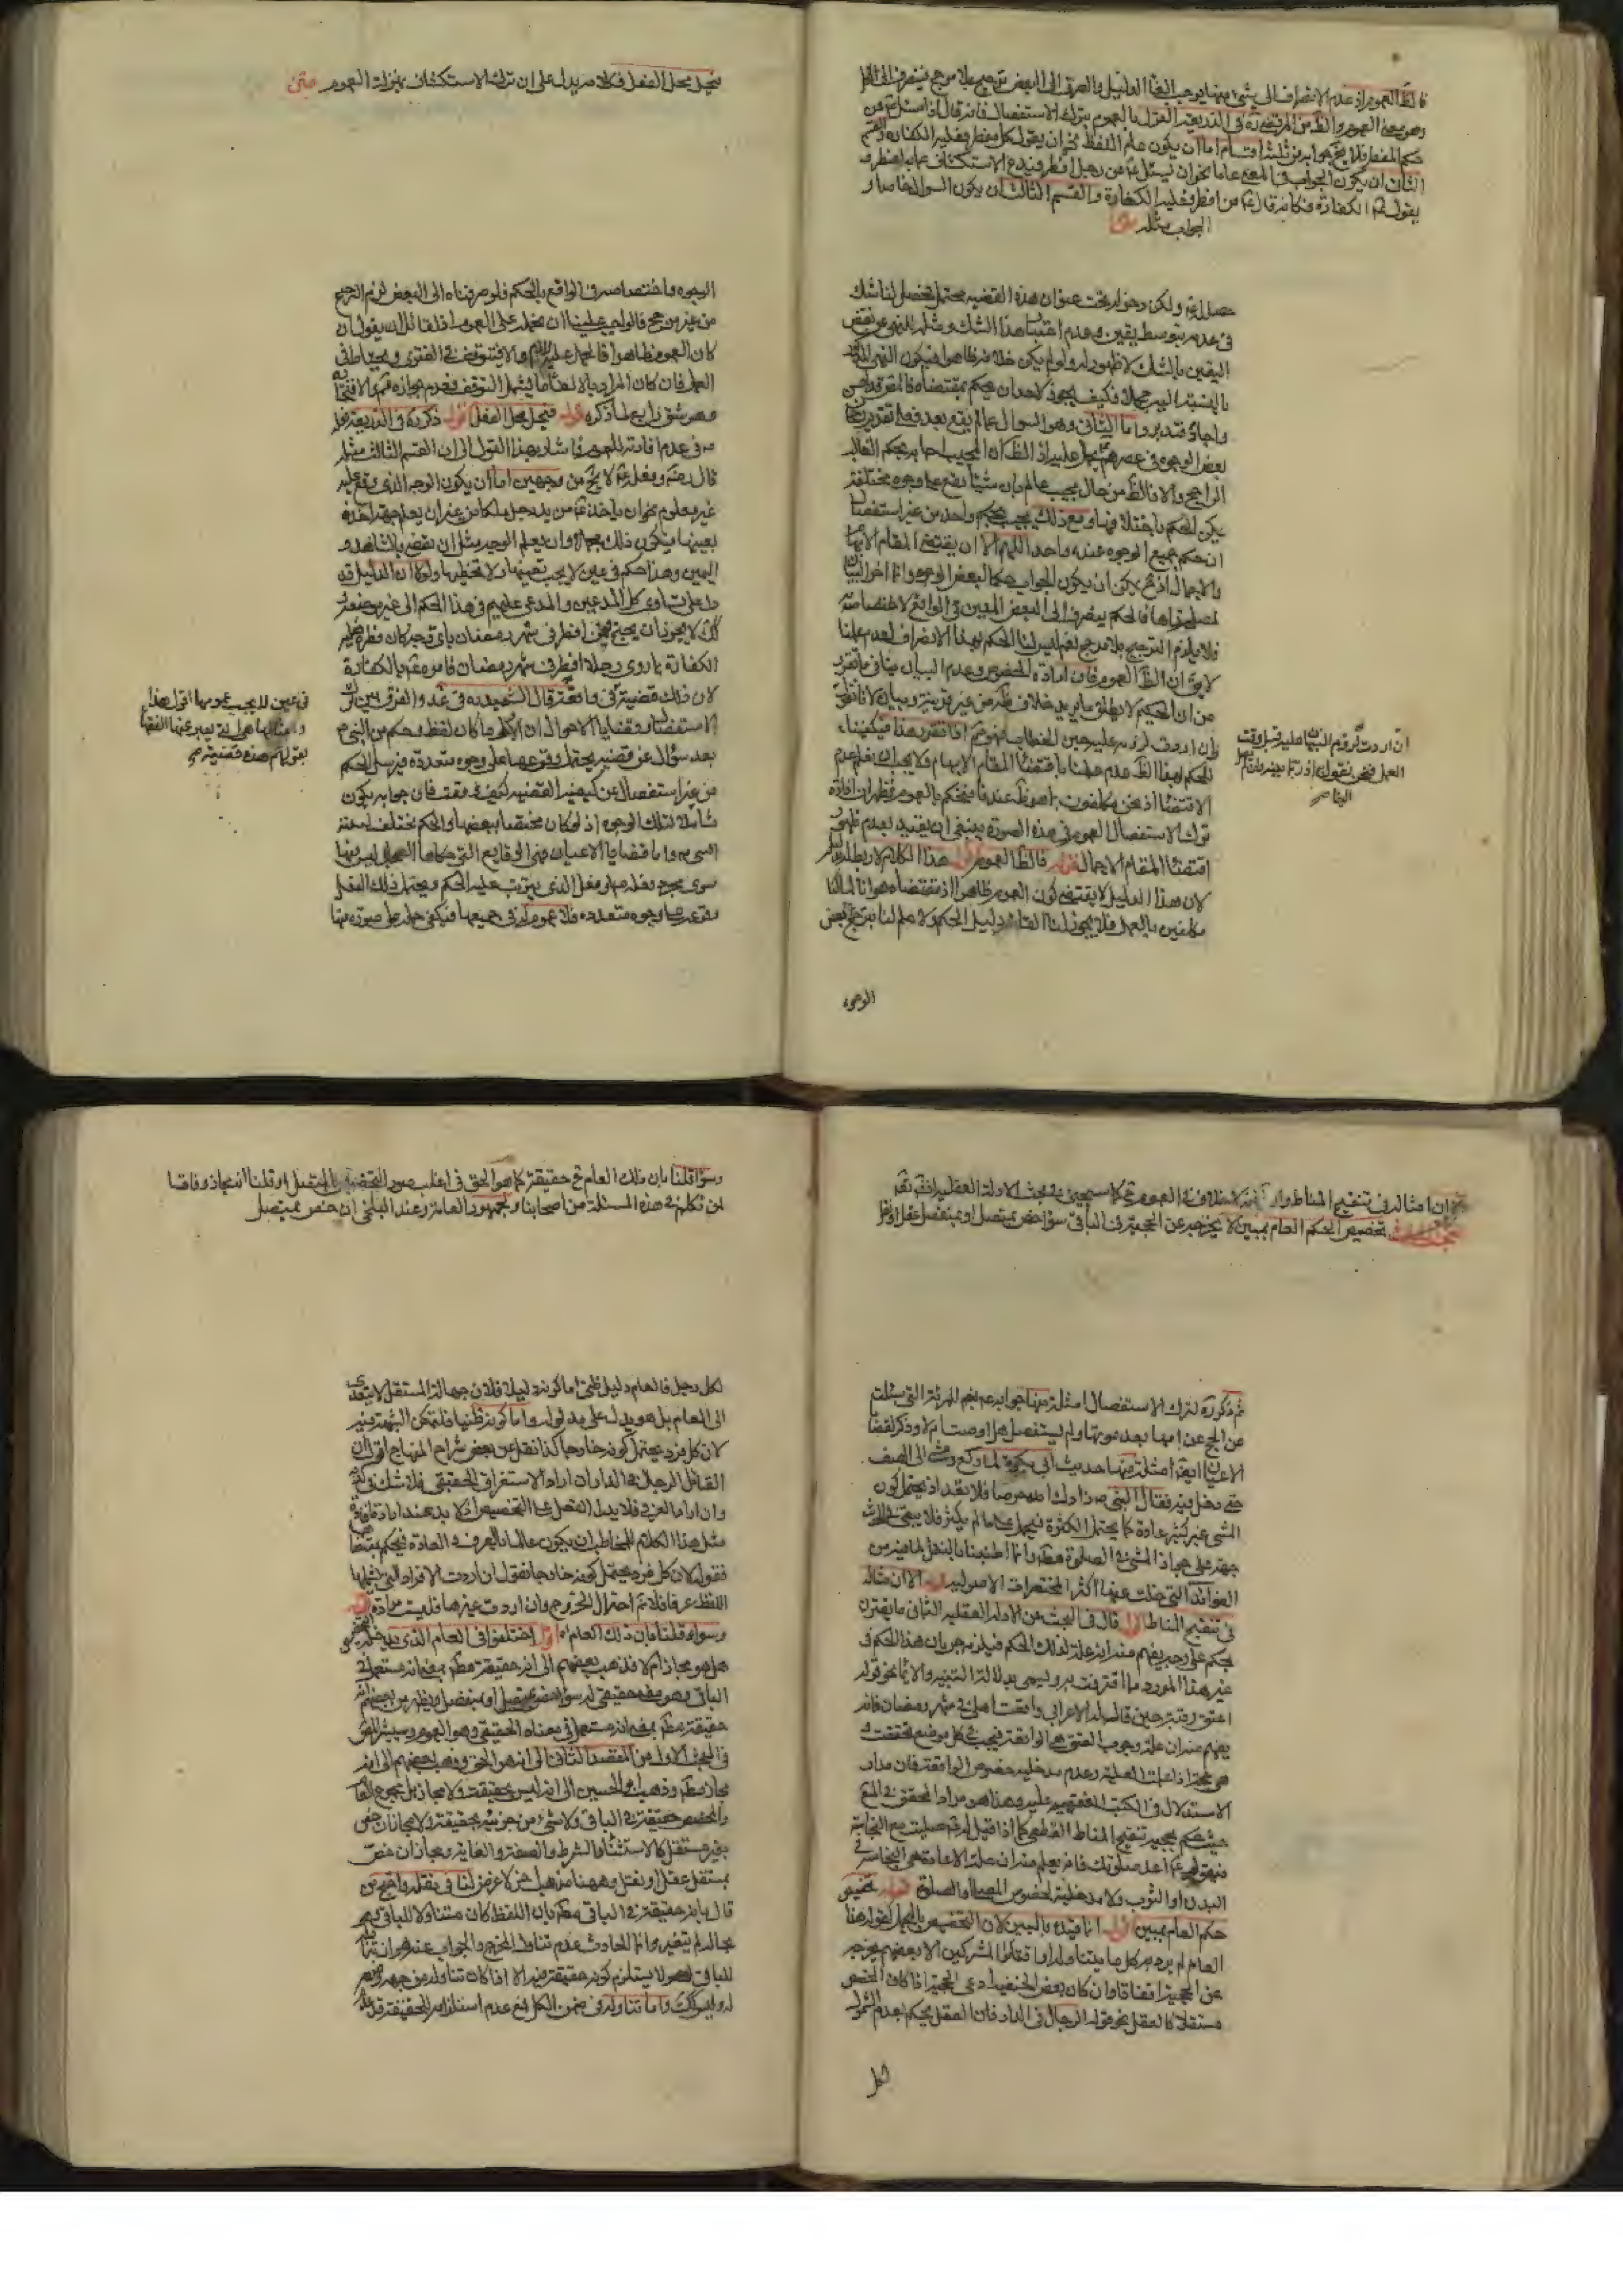 فالظ العموم اذ عدم الانصراف الى شيء منها يوجب الغاء الدليل والصرف الى البعض ترجيح بلا مرجح فينصرف الى الكل
وهو معنى العموم والظ من المرتضى ره في الذريعة القول بالعموم بترك الاستفصال فانه قال اذا سئل عن
حكم المفطر فلا يخ جوابه من ثلثة اقسام اما ان يكون عام اللفظ نحو ان يقول كل مفطر فعليه الكفارة والقسم
الثاني ان يكون الجواب في المعنى عاما نحو ان يسئل عن رجل افطر فيدع الاستكشاف عما به افطر و
يقول الكفارة فكانه قال من افطر فعليه الكفارة والقسم الثالث ان يكون السؤال خاصا و
الجواب مثله
حصل له ولكن دخوله تحت عنوان هذه القضية محتمل فحصل لنا شك
في عدمه بتوسط يقين وعدم اعتبار هذا الشك
اليقين بالشك لا ظهور له ولو لم يكن خلافه ظاهرا فيكون
بالنسبة اليه مجملا فكيف يجوز لاحد ان يحكم بمقتضاه فالفرق واضح
واما الثاني وهو السؤال عما لم يقع بعد
بعض الوجوه في عصرهم يحمل عليه اذ الظ ان المجيب احاب بحكم الغالب
الراجح والا فالظ من حال مجيب عالم بان شيئا يقع على وجوه مختلفة
يمكن الحكم باختلافها ومع ذلك يجيب بحكم واحد من غير استفصال
ان حكم جميع الوجوه عنده واحد اللهم الا ان يقتضي المقام الابهام
والاجمال اذ ح يمكن ان يكون الجواب حكما لبعض الوجوه وانما اخر البيان
لمصلحة راها فالحكم ينصرف الى البعض المعين في الواقع لاختصاصه
فلا يلزم الترجيح بلا مرجح نعم ليس لنا الحكم بهذا الانصراف لعدم علمنا
لا يق ان الظ العموم فان ارادة الخصوص وعدم البيان ينافي ما تقرر
من ان الحكيم لا يطلق ما يريد خلاف ظه من غير قرينة وبيان لانا نقول
ان اردت لزومه عليه حين الخطاب فهو مم اذا تقرر هذا فيكفينا
للحكم بهذا الظ عدم علمنا باقتضاء المقام الابهام ولا يجب ان نعلم عدم
الاقتضاء اذ نحن مكلفون بما هو ظ عندنا فنحكم بالعموم فظهر ان افادة
ترك الاستفصال العموم في هذه الصورة ينبغي ان يقيد بعدم ظهور
اقتضاء المقام الاجمال قوله فالظ العموم اقول هذا الكلام لا ربط له
لان هذا الدليل لا يقتضي كون العموم ظاهرا اذ مقتضاه هو انا لما كنا
مكلفين بالعمل فلا يجوز لنا القاء دليل الحكم ولا علم لنا بترجيح بعض
الوجوه
ان اردت لزوم البيان عليه قبل وقت
العمل فنحن نقول
فيحمل محل الفعل فكلامه يدل على ان ترك الاستكشاف بمنزلة العموم متن
الوجوه واختصاصه في الواقع بالحكم فلو صرفناه الى البعض لزم الترجيح
من غير مرجح فالواجب علينا ان نحمله على العموم اذ لقائل ان يقول ان
كان العموم ظاهرا فالحمل عليه والا فيتوقف في الفتوى ويحتاط في
العمل فان كان المراد بالالغاء ما يشمل التوقف فعدم جوازه مم
وهو شق رابع لما ذكره قوله فيحمل محل الفعل اقول ذكر ره في الذريعة
في عدم افادته للعموم فاشار بهذا القول الى ان القسم الثالث مثله
قال رضه وفعله لا يخ من وجهين اما ان يكون الوجه الذي وقع عليه
غير معلوم نحو ان ياخذ من يد رجل ملكا من غير ان يعلم جهة اخذه
بعينها فيكون ذلك مجملا وان يعلم الوجه مثل ان يقضي بالشاهد و
اليمين وهذا حكم في عين لا يجب تعينها ولا تخطيها ولولا ان الدليل قد
دل على تساوي كل المدعين والمدعى عليهم في هذا الحكم الى غير
لا يجوز ان يحتج فيمن افطر في شهر رمضان باي وجه كان فطره
الكفارة بما روي رجلا افطر في شهر رمضان فامره بالكفارة
لان ذلك قضية في وا قال الشهيد ره في عد والفرق بين ترك
الاستفصال وقضايا الاحوال ان الاول ما كان لفظ وحكم من النبي ص
بعد سؤال عن قضية يحتمل وقوعها على وجوه متعددة فيرسل الحكم
من غير استفصال عن كيفية القضية كيف وقعت فان جوابه يكون
شاملا لتلك الوجوه اذ لو كان مختصا ببعضها والحكم يختلف لبينه
النبي ص واما قضايا الاعيان فهي الوقايع التي حكاها الصحابي ليس فيها
سوى مجرد فعله ص او فعل الذي يترتب عليه الحكم ويحتمل ذلك الفعل
وقوعه على وجوه متعدده فلا عموم له في جميعها فيكفي حمله على صورة منها
في عين لا يجب عمومها اقول هذا
وامثالها هي التي يعبر عنها الفقهاء
بقولهم هذه قضية
ان امثاله في تنقيح المناط كما سيجيئ في بحث الادلة العقلية انشاء الله تعالى
تخصيص الحكم العام بمبين لا يخرجه عن الحجية في الباقي سواء خص بمتصل او بمنفصل عقل او نقل
ثم ذكر ره لترك الاستفصال امثلة منها جوابه ص المرئة التي سئلت
عن الحج عن امها بعد موتها ولم يستفصل هل اوصت ام لا وذكر لقضايا
الاعيان ايضا امثلة منها حديث ابي بكرة لما ركع ومشى الى الصف
حتى دخل فيه فقال النبي ص زادك الله حرصا ولا تعد اذ يحتمل كون
المشي غير كثير عادة كما يحتمل الكثرة فيحمل على ما لم يكثر فلا يبقى فيه
حجة على جواز المشي في الصلوة مط وانما اطنبنا بالنقل لما فيه من
الفوائد التي خلت عنها اكثر المختصرات الاصولية قوله الا ان مثاله
في تنقيح المناط اقول قال في البحث عن الادلة العقلية الثاني ما يقترن
بحكم على وجه يفهم منه انه علة لذلك الحكم فيلزم جريان هذا الحكم في
غير هذا المورد مما اقترنت به ويسمى بدلالة التنبيه والايماء نحو قوله
اعتق رقبة حين قال له الاعرابي واقعت اهلي في شهر رمضان فانه
يفهم منه ان علة وجوب العتق هي المواقعة فيجب في كل موضع تحققت و
هي حجة اذا علمت العلية وعدم مدخلية خصوص الواقعة فان مدار
الاستدلال في الكتب الفقهية عليه وهذا هو مراد المحقق في المع
حيث حكم بحجية تنقيح المناط القطعي كما اذا قيل له صليت مع النجاسة
فيقول اعد صلوتك فانه يعلم منه ان علة الاعادة هي النجاسة في
البدن او الثوب ولا مدخلية لخصوص المصلي او الصلوة قوله تخصيص
حكم العام بمبين اقول انما قيده بالمبين لان التخصيص بالمجمل كقوله هذا
العام لم يرد به كل ما يتناوله او اقتلوا المشركين الا بعضهم يخرجه
عن الحجية اتفاقا وان كان بعض الحنفية ادعى الحجية اذا كان المخصص
مستقلا كالعقل نحو قوله الرجال في الدار فان العقل يحكم بعدم الشمول
وسواء قلنا بان ذلك العام ح حقيقة كما هو الحق في اغلب صور التخصيص بالمتصل او قلنا انه مجاز وفاقا
لمن تكلم في هذه المسئلة من اصحابنا ولجمهور العامة وعند البلخي ان خص بمتصل
لكل رجل فالعام دليل ظني اما كونه دليلا فلان جهالة المستقل لا يتعدى
الى العام بل هو يدل على مدلوله واما كونه ظنيا فلتمكن الشبهة فيه
لان كل فرد يحتمل كونه خارجا كذا نقل عن بعض شراح المنهاج اقول ان
القائل الرجال في الدار ان اراد الاستغراق الحقيقي فلا شك في كذبه
وان اراد العرفي فلا يدل العقل على التخصيص ولا بد عند ارادة
مثل هذا الكلام للمخاطب ان يكون عالما بالعرف والعادة فيحكم بمقتضاها
فقوله لان كل فرد يحتمل كونه خارجا نقول ان اردت الافراد التي يشملها
اللفظ عرفا فلا نم احتمال الخروج وان اردت غيرها فليست مرادة قوله
وسواء قلنا بان ذلك العام اه اقول اختلفوا في العام الذي
هل هو مجاز ام لا فذهب بعضهم الى انه حقيقة مط بمعنى انه مستعمل في
الباقي وهو معنى حقيقي له سواء خص بمتصل او بمنفصل ويظهر من بعضهم انه
حقيقة مط بمعنى انه مستعمل في معناه الحقيقي وهو العموم وسيشير المص
في البحث الاول من المقصد الثاني الى انه هو الحق وذهب بعضهم الى انه
مجاز مط وذهب ابو الحسين الى انه ليس بحقيقة ولا مجاز بل مجموع العام
والمخصص حقيقة في الباقي ولا شيء من جزئيه بحقيقة ولا مجاز ان خص
بغير مستقل كالاستثناء والشرط والصفة والغاية ومجاز ان خص
بمستقل عقل او نقل وههنا مذاهب اخر لا غرض لنا في نقلها واحتج من
قال بانه حقيقة في الباقي مط بان اللفظ كان متناولا للباقي وهو
بحاله لم يتغير وانما الحادث عدم تناوله المخرج والجواب عنه هو ان تناوله
للباقي لا يستلزم كونه حقيقة فيه الا اذا كان تناوله من جهة وضعه
له وليس كك واما تناوله في ضمن الكل فمع عدم استلزامه للحقيقة